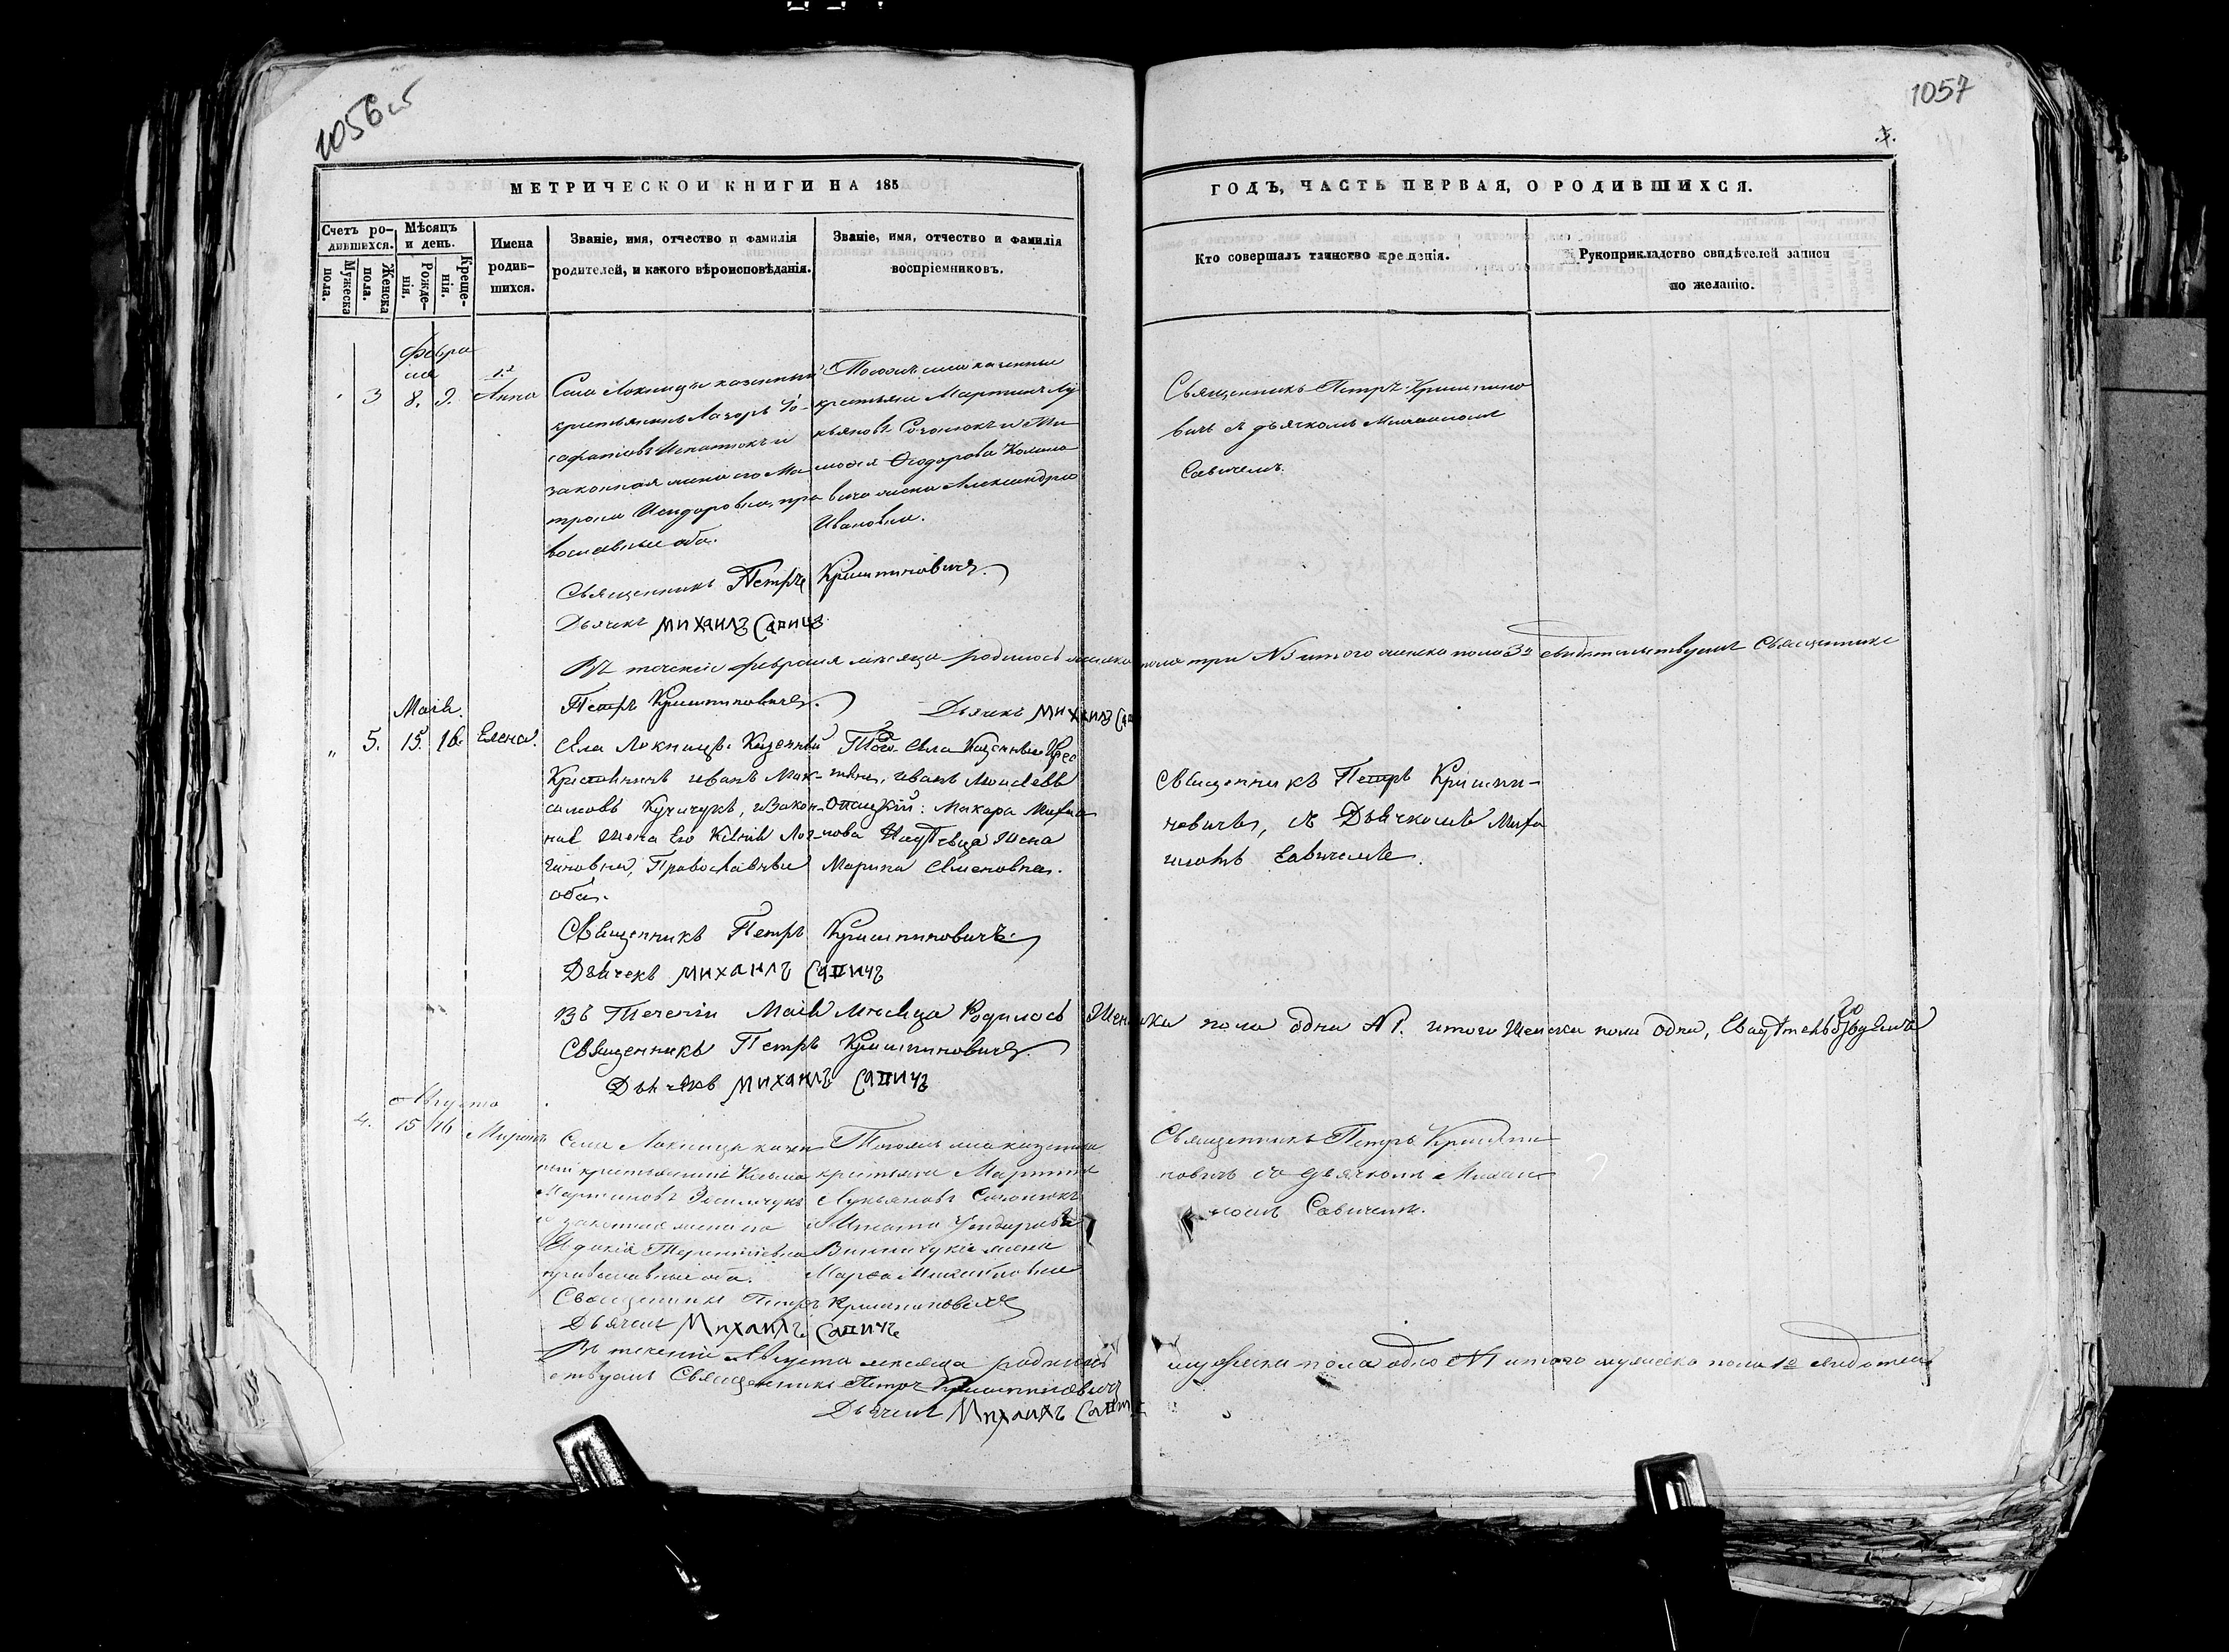 1056 об
1057
МЕТРИЧЕСКОЙ КНИГИ НА 185
ГОДЪ, ЧАСТЬ ПЕРВАЯ, О РОДИВШИХСЯ.
Счетъ ро-
дившихся.
Мужеска
пола.
Женска
пола.
Мѣсяцъ
и день.
Рожде-
нія.
Креще-
нія.
Имена
родив-
шихся.
Званіе, имя, отчество и фамилія
родителей, и какого вѣроисповѣданія.
Званіе, имя, отчество и фамилія
воспріемниковъ.
Кто совершалъ таинство крещенія.
Рукоприкладство свидѣтелей записи
по желанію.
Февра
ля
3 8. 9. Анна
Села Локницы казенный
крестьянинъ Лазоръ Іо-
сафатовъ Игнатюкъ и
законная жена его Ма
трона Исидоровна, пра
вославные оба.
Тогожъ села казенные
крестьяни Мартинъ Лу
кьяновъ и
Ѳеодорова
вича жена Александра
Ивановна.
Священникъ Петръ Криштино
вичъ съ дьячкомъ Михаиломъ
Савичемъ.
Священникъ Петръ Криштиновичъ
Дьячекъ Михаилъ Сапичъ
Въ теченіе февраля мѣсяца родилось женска пола три №3 итого женска пола 3 свидѣтельствуемъ Священникъ
Петръ Криштиновичъ. Дьячекъ Михаилъ Сап
Маія.
" 5. 15. 16. Елена.
Села Локницы. Казенный
Крестьнинъ Иванъ Мак-
симовъ Кучичукъ, и Закон-
ная Жена Его Ксенія Лог-
гиновна, Православные
оба.
Того Села Казенные Крес
тяни, Иванъ Моисеевъ
Опацкій: Макара
Жена
Марина Семеновна.
Священникъ Петръ Криштин-
новичъ, съ Дьячкомъ Миха
иломъ Савичемъ.
Священникъ Петръ Криштиновичъ
Дьячекъ Михаилъ Сапичъ
Въ Теченіи Маія Мѣсяца Родилось Женска пола одна №1. итого Женска пола одна, Свидѣтельствуемъ
Священникъ Петръ Криштиновичъ.
Дьячекъ Михаилъ Сапичъ
Августа
4. 15 16 Миронъ
Села Локницы казен
ный крестьянинъ Козьма
Мартиновъ
и законная жена его
Терентіевна
православные оба.
Тогожъ села казенные
крестьяни Мартинъ
Лукьяновъ
и Игнатія
жена
Марѳа
Священникъ Петръ Кришти
новичъ съ дьячкомъ Михаи
ломъ Савичемъ.
Священникъ Петръ Криштиновичъ
Дьячекъ Михаилъ Сапичъ
Въ теченіи Августа мѣсяца родилось мужеска пола одно №1 итого мужеска пола 1 свидѣтель
ствуемъ Священникъ Петръ Криштиновичъ
Дьячекъ Михаилъ Сапичъ